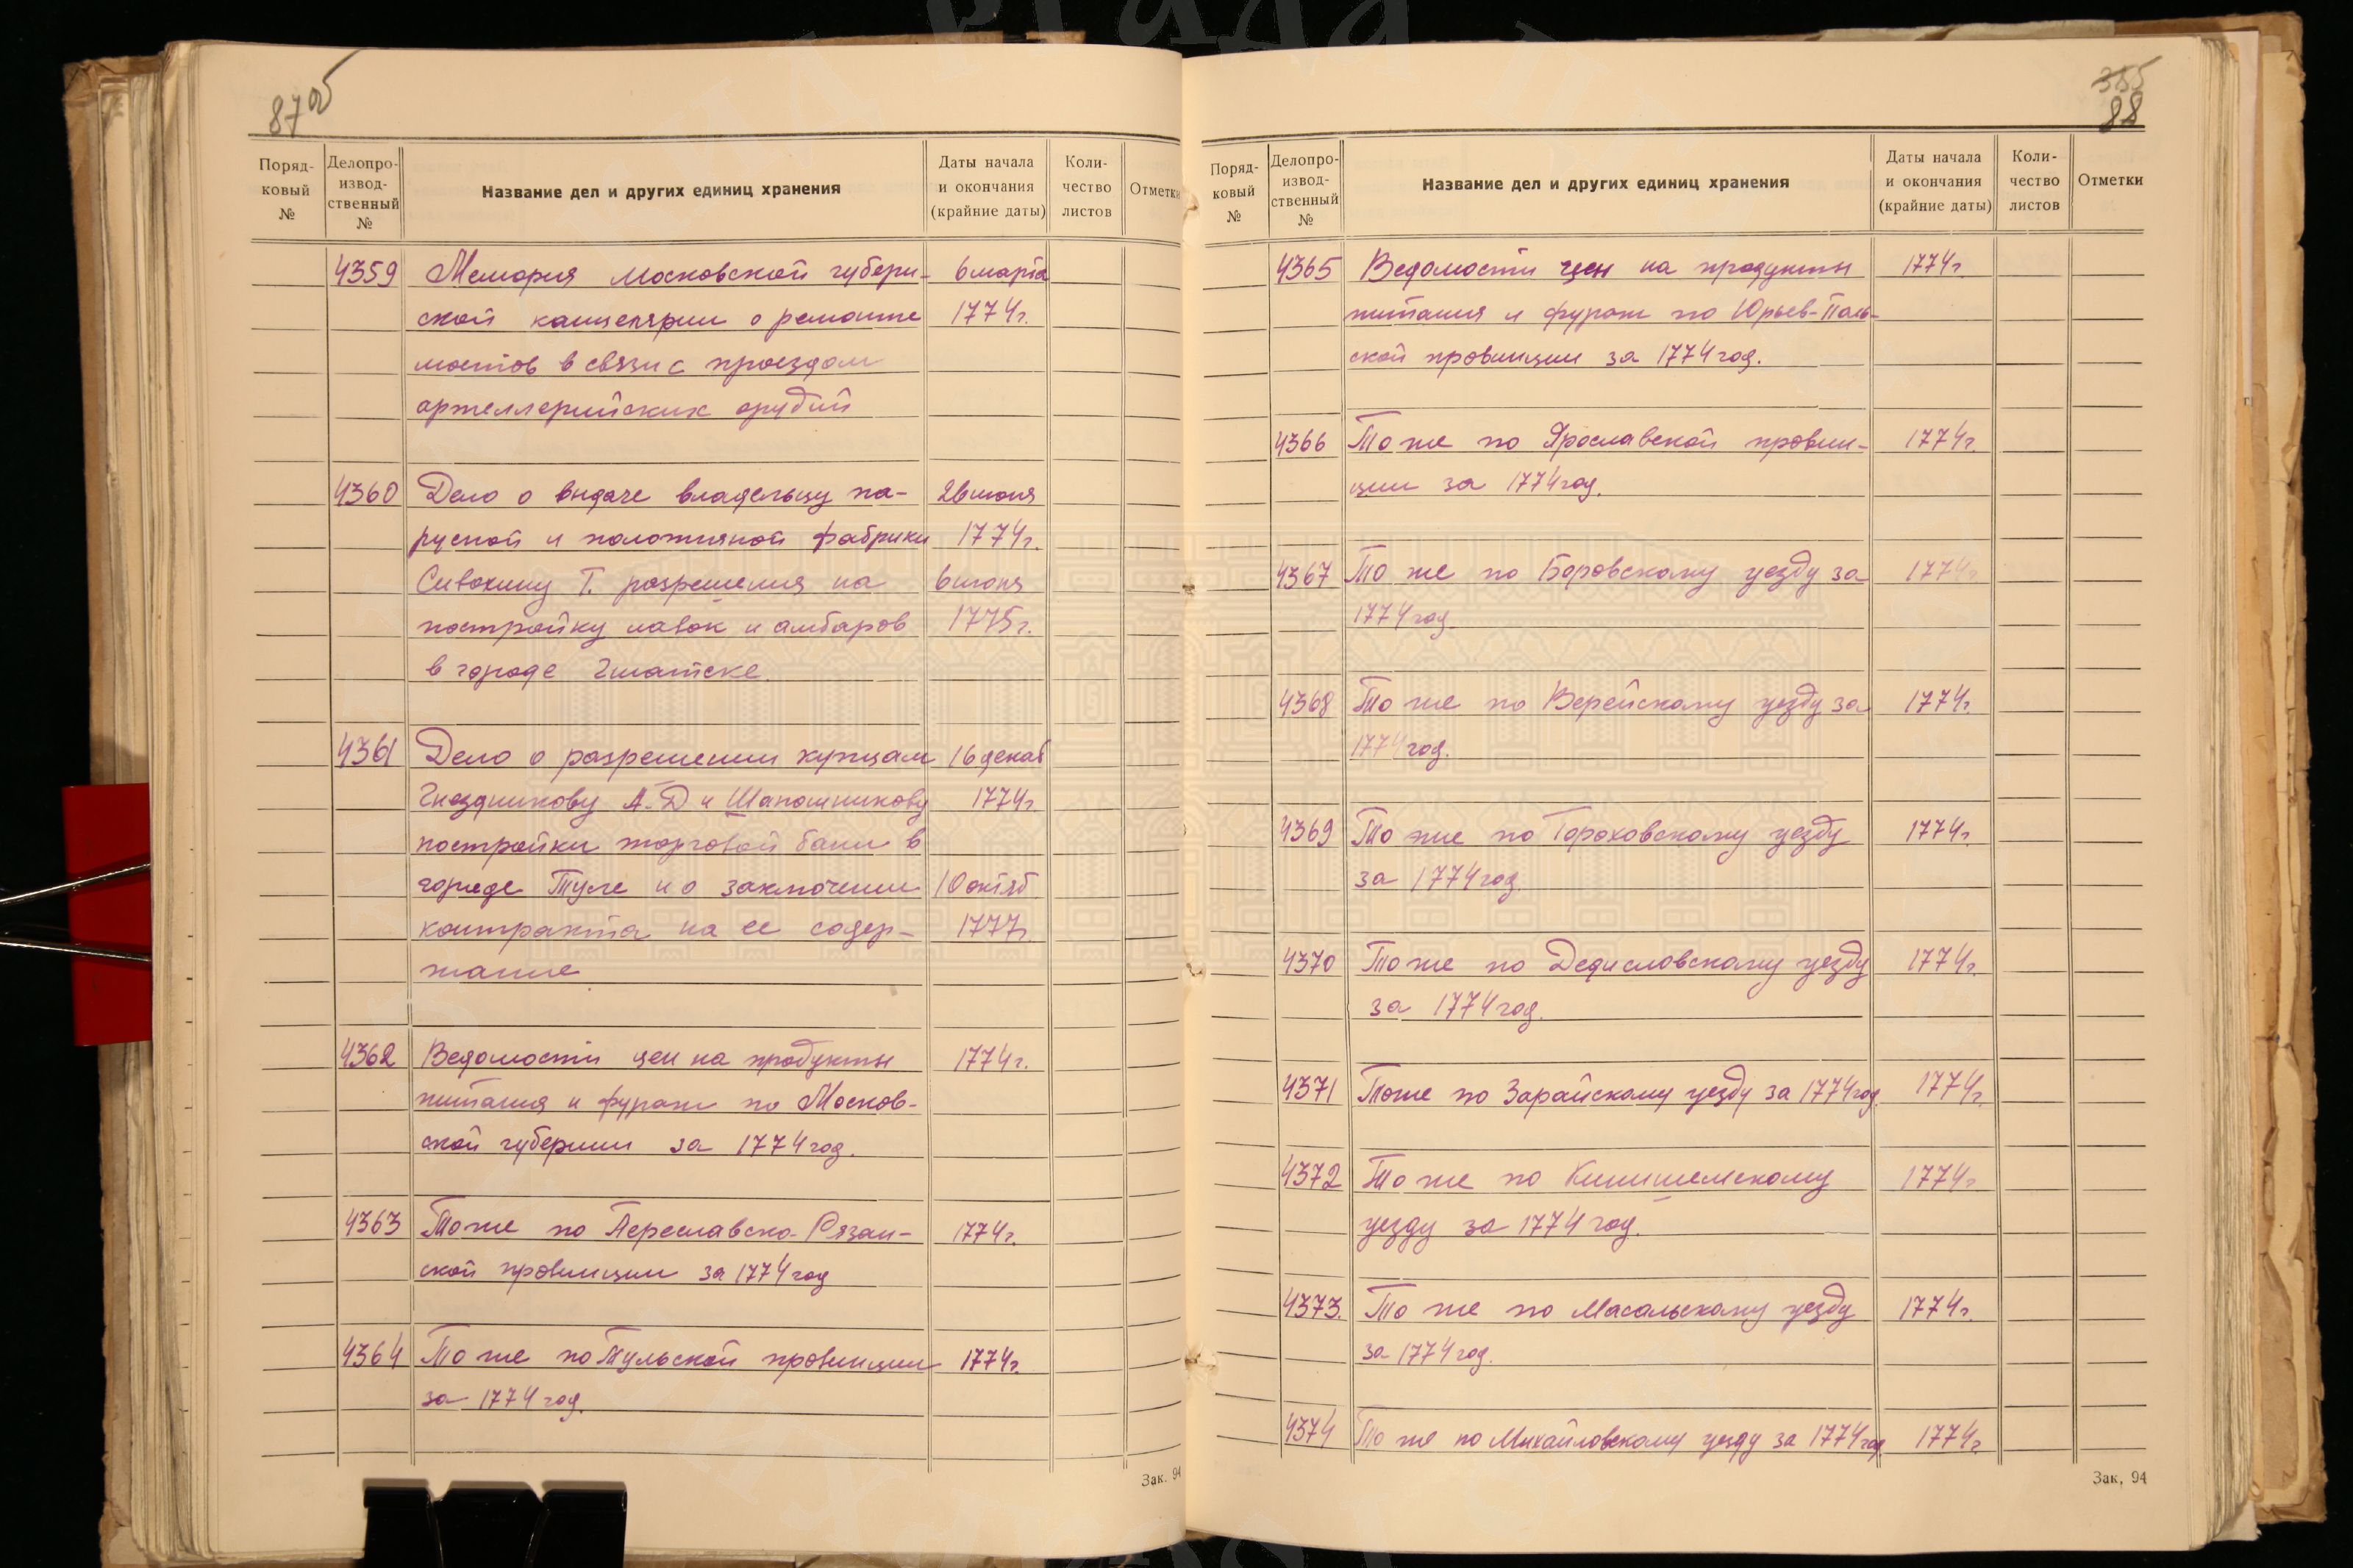 87об
Поряд-
ковый
№
Делопро-
извод-
ственный
№
Название дел и других единиц хранения
Даты начала
и окончания
(крайние даты)
Коли-
чество
листов
Отметки
4359 Мемория Московской губерн- 6 марта
ской канцелярии о ремонте 1774г.
мостов в связи с проездом
артеллерийских орудий
4360 Дело о выдаче владельцу па- 26 июня
русной и полотняной фабрики 1774г.
Сивохину Т. разрешения на 6 июня
постройку лавок и амбаров 1775г.
в городе Гжатске.
4361 Дело о разрешении купцам 16 декаб
Гнездникову А.Д и Шапошникову 1774г.
постройки торговой бани в
городе Туле и о заключении 10 октяб
контракта на ее содер- 1777г.
жание
4362 Ведомости цен на продукты 1774г.
питания и фураж по Москов-
ской губернии за 1774 год.
4363 То же по Переславско-Рязан- 1774г.
ской провинции за 1774 год
4364 То же по Тульской провинции 1774г.
за 1774 год.
Зак. 94
355
88
Поряд-
ковый
№
Делопро-
извод-
ственный
№
Название дел и других единиц хранения
Даты начала
и окончания
(крайние даты)
Коли-
чество
листов
Отметки
4365 Ведомости цен на продукты 1774г.
питания и фураж по Юрьев-Поль-
ской провинции за 1774 год.
4366 То же по Ярославской провин- 1774г.
ции за 1774 год.
4367 То же по Боровскому уезду за 1774г
1774 год.
4368 То же по Верейскому уезду за 1774г.
1774 год.
4369 То же по Гороховскому уезду 1774г.
за 1774 год.
4370 То же по Дедиловскому уезду 1774г.
за 1774 год.
4371 То же по Зарайскому уезду за 1774 год. 1774г.
4372 То же по Кинишемскому 1774г
уезду за 1774 год.
4373. То же по Масальскому уезду 1774г.
за 1774 год.
4374 То же по Михайловскому уезду за 1774 год 1774г.
Зак. 94